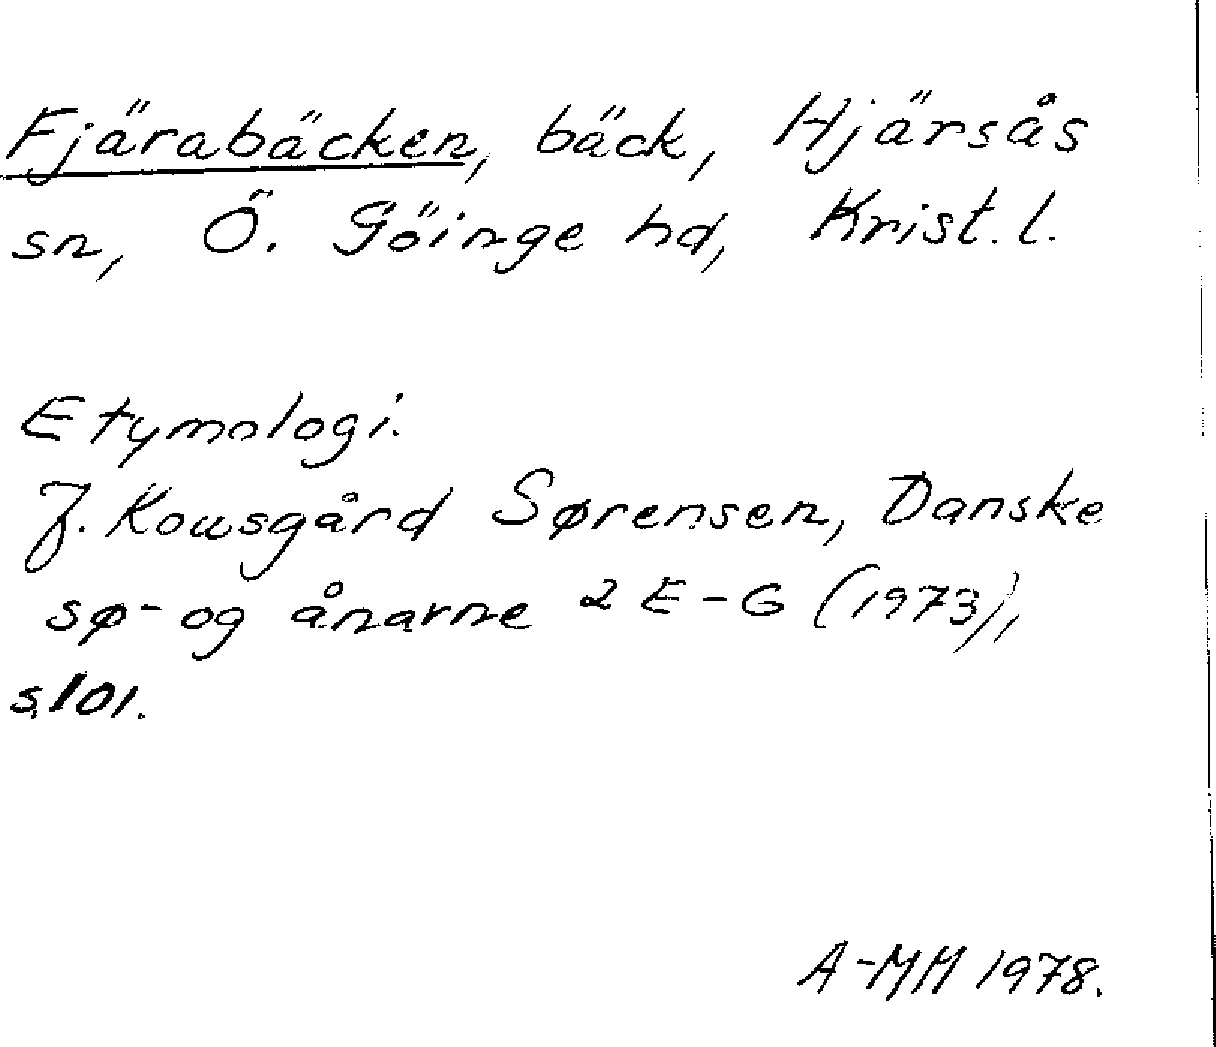 Fjärabäcken, bäck, Hjärsås
sn, Ö. Göinge hd, Krist. l.
Etymologi.
J. Kousgård Sørensen, Danske
sø- og ånavne 2 E-G (1973),
s.101.
A-MM 1978.